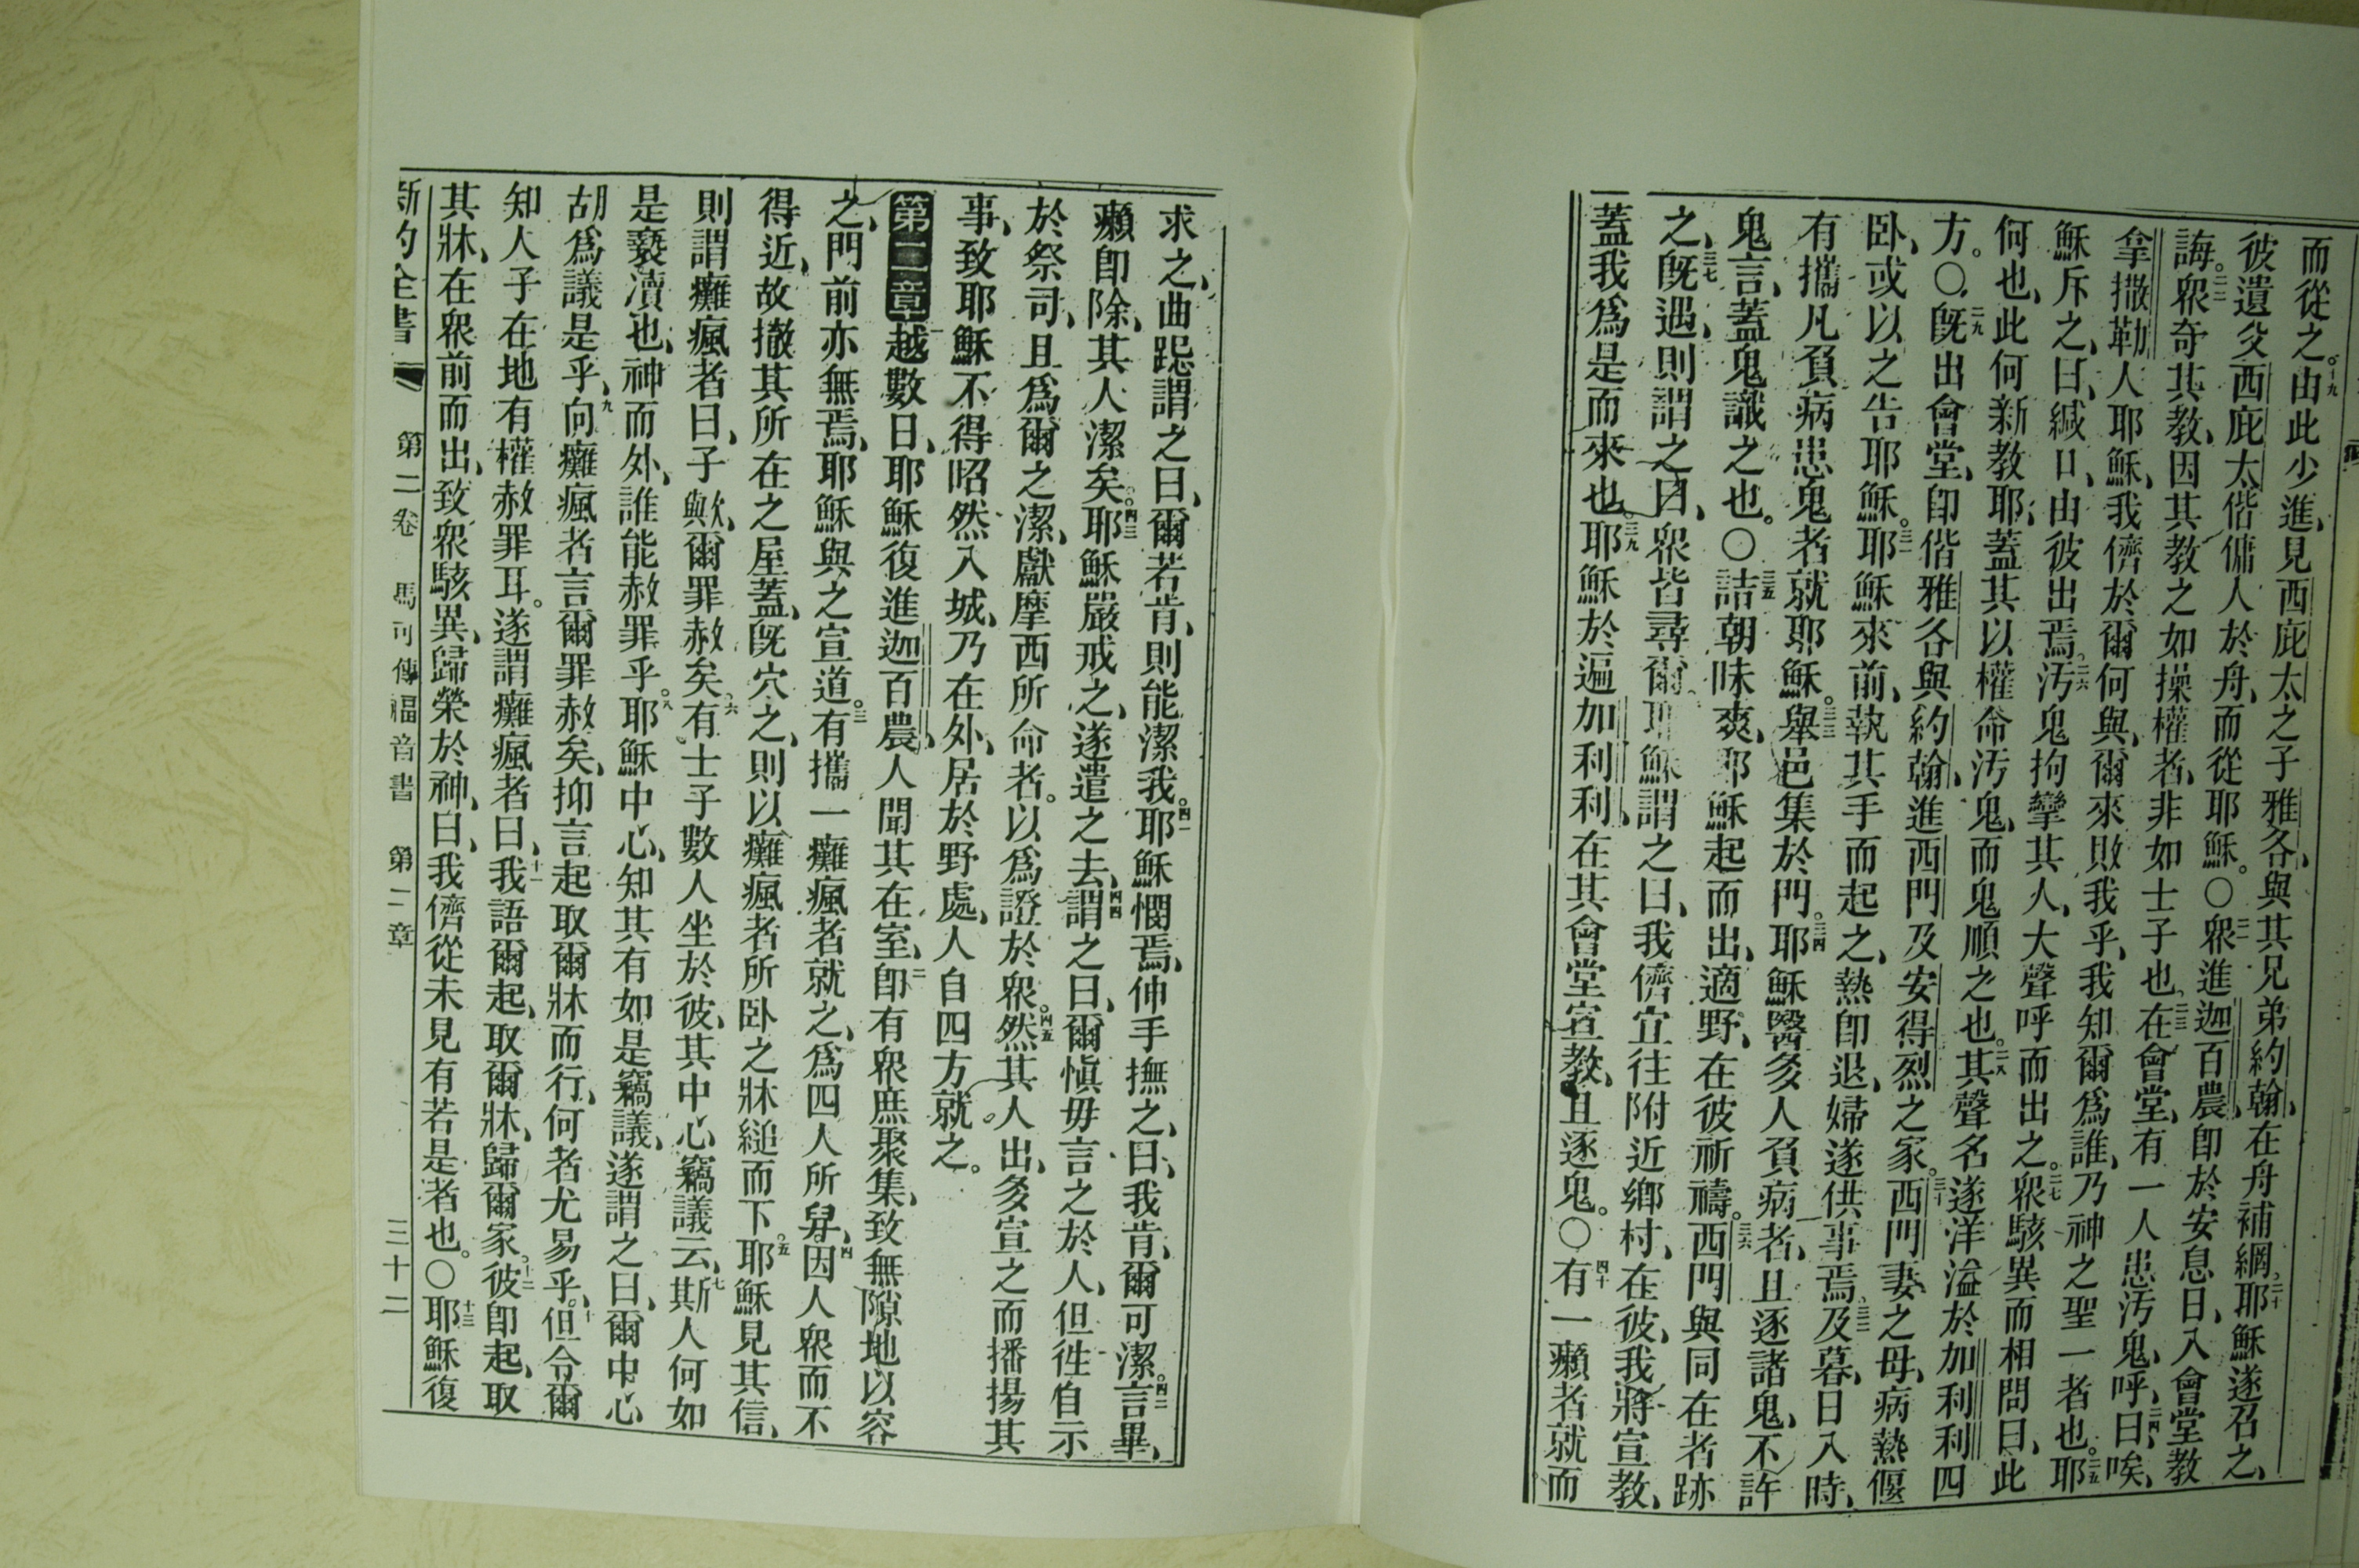 而從之。十九由此少進、見西庇太之子雅各、與其兄弟約翰、在舟補網。二十耶穌遂召之、
彼遺父西庇太偕傭人於舟、而從耶穌。〇二一眾進迦百農、卽於安息日、入會堂教
誨。二二眾奇其教、因其教之如操權者、非如士子也。二三在會堂、有一人患汚鬼、呼二四曰、唉、
拿撒勒人耶穌、我儕於爾何與、爾來敗我乎、我知爾爲誰、乃神之聖一者也。二五耶
穌斥之、曰、緘口、由彼出焉。二六汚鬼拘攣其人、大聲呼而出之。二七眾駭異而相問曰、此
何也、此何新教耶、蓋其以權命汚鬼、而鬼順之也。二八其聲名遂洋溢於加利利四
方。〇二九旣出會堂、卽偕雅各與約翰、進西門及安得烈之家。三十西門妻之母、病熱偃
卧、或以之告耶穌。三一耶穌來前、執其手而起之、熱卽退、婦遂供事焉。三二及暮、日入時、
有攜凡負病患鬼者就耶穌。三三舉邑集於門。三四耶穌醫多人負病者、且逐諸鬼、不許
鬼言、蓋鬼識之也。〇三五詰朝昧爽、耶穌起而出、適野、在彼祈禱。三六西門與同在者跡
之、三七旣遇、則謂之曰、眾皆尋爾。耶穌謂之曰、我儕宜往附近鄉村、在彼、我將宣教、
蓋我爲是而來也。三九耶穌於遍加利利、在其會堂宣教、且逐鬼。〇四十有一癩者就而
求之、曲跽謂之曰、爾若肯、則能潔我。四一耶穌憫焉、伸手撫之、曰、我肯、爾可潔。四二言畢、
癩卽除、其人潔矣。四三耶穌嚴戒之、遂遣之去、四四謂之曰、爾愼毋言之於人、但徃自示
於祭司、且爲爾之潔、獻摩西所命者。以爲證於眾。四五然其人出、多宣之而播揚其
事、致耶穌不得昭然入城、乃在外、居於野處、人自四方就之。
第二章一越數日、耶穌復進迦百農、人聞其在室、二卽有眾庶聚集、致無隙地以容
之、門前亦無焉、耶穌與之宣道。三有攜一癱瘋者就之、爲四人所舁。四因人眾而不
得近、故撤其所在之屋蓋、旣穴之、則以癱瘋者所卧之牀縋而下。五耶穌見其信、
則謂癱瘋者曰、子與歟、爾罪赦矣。六有士子數人坐於彼、其中心竊議云、七斯人何如
是褻瀆也、神而外、誰能赦罪乎。八耶穌中心、知其有如是竊議、遂謂之曰、爾中心
胡爲議是乎、九向癱瘋者言爾罪赦矣、抑言起取爾牀而行、何者尤易乎。十但令爾
知人子在地有權赦罪耳。遂謂癱瘋者曰、十一我語爾起、取爾牀、歸爾家。十二彼卽起、取
其牀、在眾前而出、致眾駭異、歸榮於神、曰、我儕從未見有若是者也。〇十三耶穌復
新約全書 第二卷 馬可傳福音書 第二章 三十二